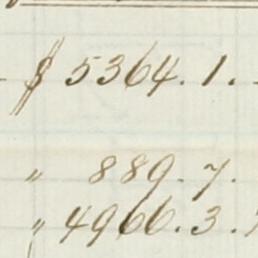 $ 5364. 1.
" 889. 7.
" 4966. 3.